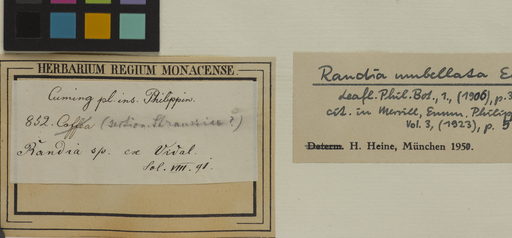 HERBARIUM REGIUM MONACENSE.
Cuming pl. ins. Philippin.
852. Coffea (section. ?)
Randia sp. ex Vidal.
Sol. VIII. 91.
Randia umbellata E
Leafl. Phil. Bot., 1, (1906), p. 3
cit. in Merrill, Enum. Philipp
Vol. 3, (1923), p. 5
Determ. H. Heine, München 1950.